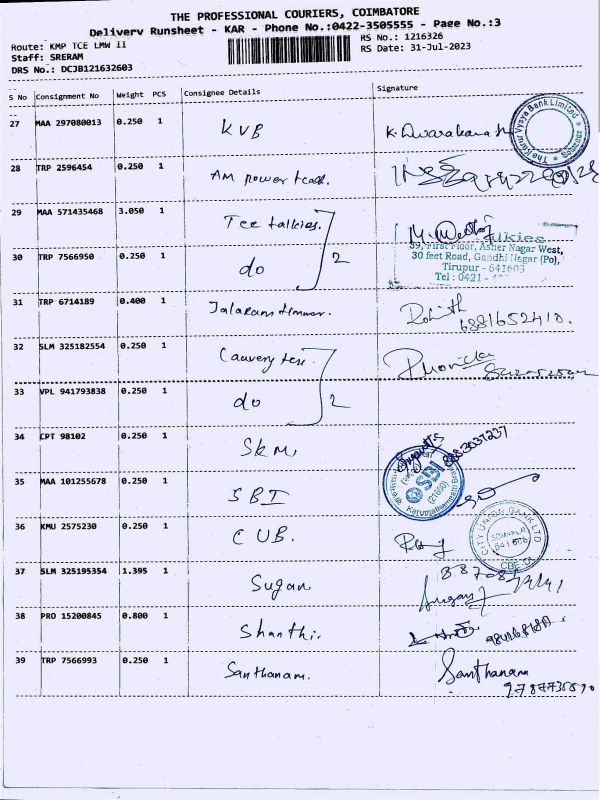 THE PROFESSIONAL COURIERS, COIMBATORE
Delivery Runsheet - KAR - Phone No.:0422-3505555 - Page No.:3
Route: KMP TCE LMW II
RS No.: 1216326
Staff: SRERAM
RS Date: 31-Jul-2023
DRS No.: DCJB121632603
S No Consignment No Weight PCS Consignee Details Signature
27 MAA 297080013 0.250 1 KVB K. Dwarakanath
The Karur Vysya Bank Limited
28 TRP 2596454 0.250 1 AM power
29 MAA 571435468 3.050 1 Tee talkies.
lkies
39, First Floor, Asher Nagar West,
30 feet Road, Gandhi Nagar (Po),
Tirupur - 641603
Tel : 0421 -
30 TRP 7566950 0.250 1 do 2
31 TRP 6714189 0.400 1 Rohith
6381652410.
32 SLM 325182554 0.250 1 Cauvery tex.
33 VPL 941793838 0.250 1 do 2
34 CPT 98102 0.250 1 SKM
35 MAA 101255678 0.250 1 SBI
SBI
36 KMU 2575230 0.250 1 CUB.
CITY UNION BANK LTD
37 SLM 325195354 1.395 1 Sugan
38 PRO 15200845 0.800 1 Shanthi.
39 TRP 7566993 0.250 1 Santhanam. Santhanam